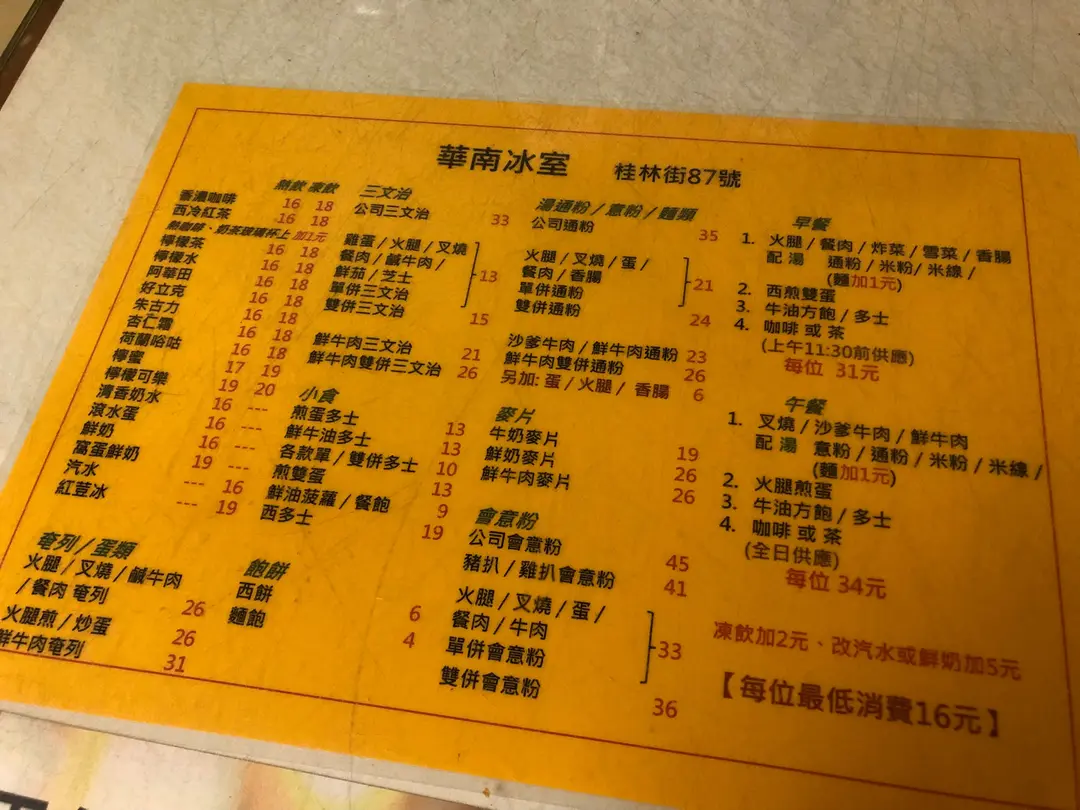 華南冰室 桂林街87號
熱飲 凍飲
香濃咖啡 16 18
西冷紅茶 16 18
熱咖啡、奶茶玻璃杯上 加1元
檸檬茶 16 18
檸檬水 16 18
阿華田 16 18
好立克 16 18
朱古力 16 18
杏仁霜 16 18
荷蘭唂咕 16 18
檸蜜 17 19
檸檬可樂 19 20
清香奶水 16 ---
滾水蛋 16 ---
鮮奶 19 ---
窩蛋鮮奶
汽水 --- 16
紅荳冰 --- 19
奄列/蛋類
火腿/叉燒/鹹牛肉
/餐肉 奄列 26
火腿煎/炒蛋 26
鮮牛肉奄列 31
三文治
公司三文治 33
雞蛋/火腿/叉燒
餐肉/鹹牛肉/
鮮茄/芝士
單併三文治 13
雙併三文治 15
鮮牛肉三文治 21
鮮牛肉雙併三文治 26
小食
煎蛋多士 13
鮮牛油多士 13
各款單/雙併多士 10
煎雙蛋 13
鮮油菠蘿/餐飽 9
西多士 19
飽餅
西餅 6
麵飽 4
湯通粉/意粉/麵類
公司通粉 35
火腿/叉燒/蛋/
餐肉/香腸
單併通粉 21
雙併通粉 24
沙爹牛肉/鮮牛肉通粉 23
鮮牛肉雙併通粉 26
另加: 蛋/火腿/ 香腸 6
麥片
牛奶麥片 19
鮮奶麥片 26
鮮牛肉麥片 26
會意粉
公司會意粉 45
豬扒/雞扒會意粉 41
火腿/叉燒/蛋/
餐肉/牛肉
單併會意粉 33
雙併會意粉 36
早餐
1. 火腿/餐肉/炸菜/雪菜/香腸
配 湯 通粉/米粉/米線/
(麵加1元)
2. 西煎雙蛋
3. 牛油方飽/多士
4. 咖啡 或 茶
(上午11:30前供應)
每位 31元
午餐
1. 叉燒/沙爹牛肉/鮮牛肉
配 湯 意粉/通粉/米粉/米線/
(麵加1元)
2. 火腿煎蛋
3. 牛油方飽/多士
4. 咖啡 或 茶
(全日供應)
每位 34元
凍飲加2元、改汽水或鮮奶加5元
【每位最低消費16元】